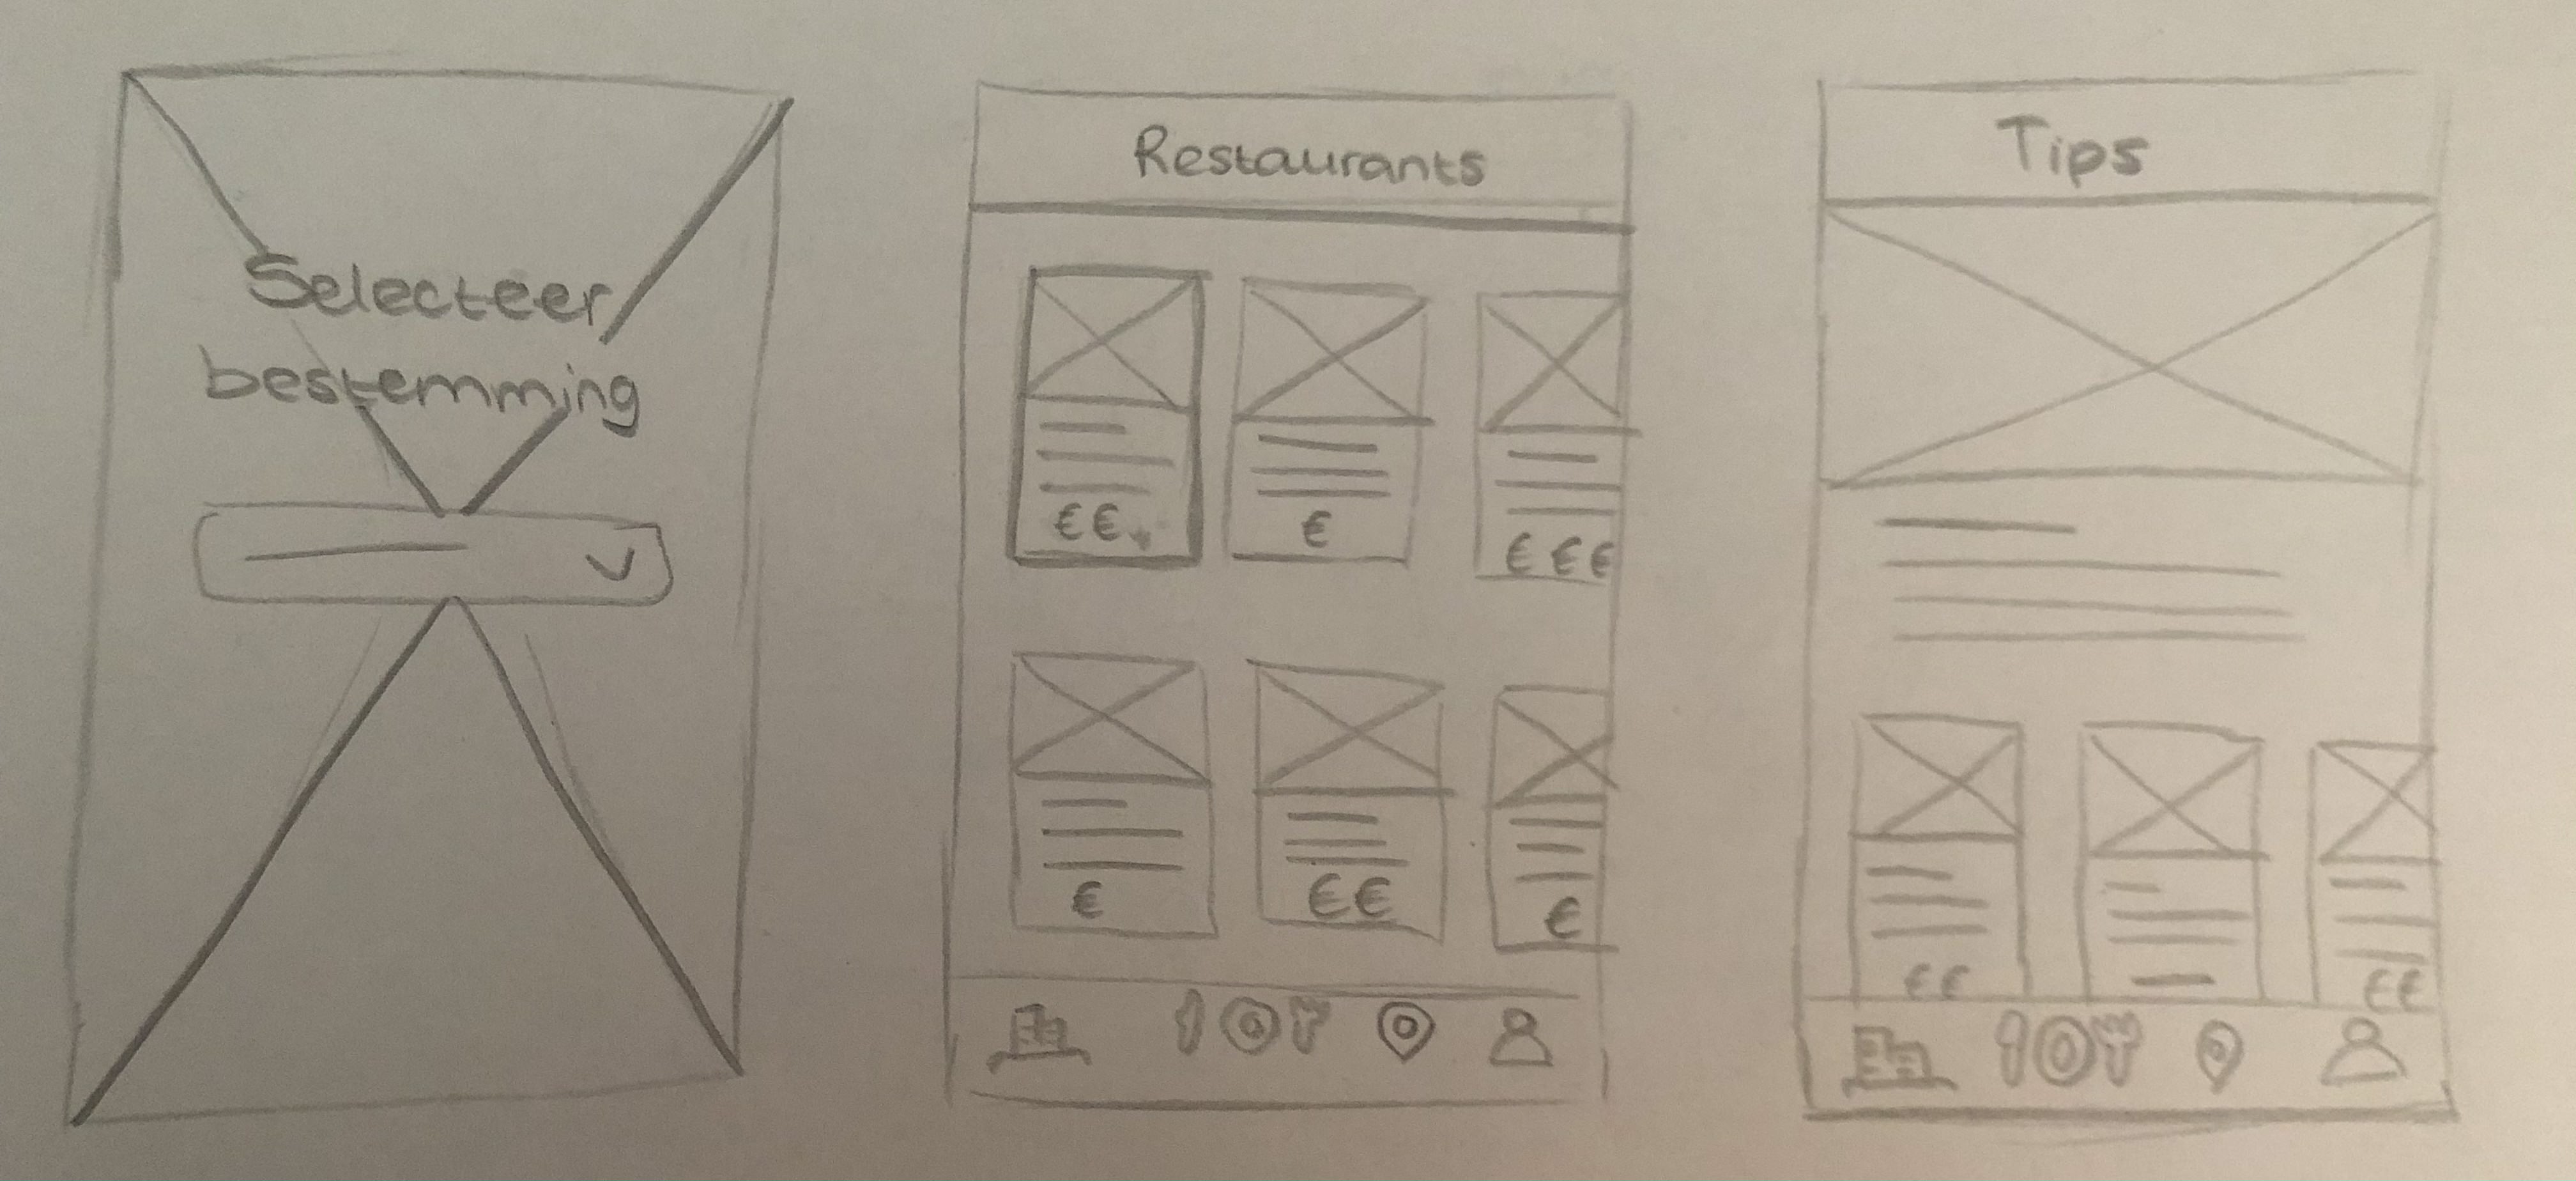 Selecteer
bestemming
Restaurants
€€
€
€€€
€
€€
€
Tips
€€
€€